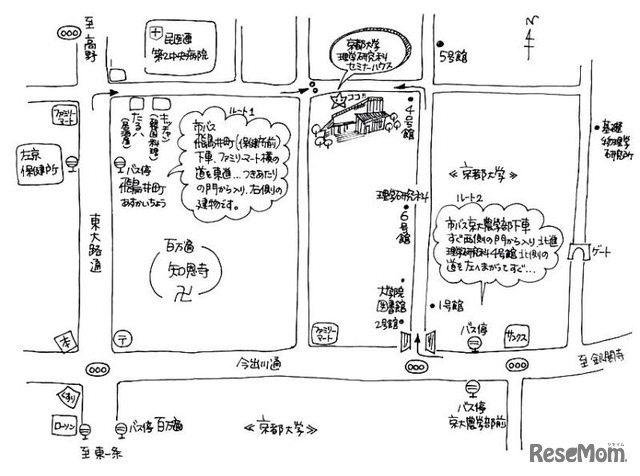 至高野
民医連
第2中央病院
京都大学
理学研究科
セミナーハウス
ココ!
5号館
N
ファミリーマート
左京
保健所
バス停
飛鳥井町
あすかいちょう
キッチャン
(韓国料理)
たるへい
(居酒屋)
ルート1
市バス
飛鳥井町(保健所前)
下車、ファミリーマート横の
道を東進…つきあたり
の門から入り、右側の
建物です。
4号館
基礎
物理学
研究所
≪京都大学≫
理学研究科
6号館
ルート2
市バス京大農学部下車
すぐ西側の門から入り、北進
理学研究科4号館北側の
道を左へまがってすぐ…
ゲート
東大路通
百万遍
知恩寺
卍
大学院
図書館
2号館
1号館
バス停
サンクス
本
〒
ファミリーマート
今出川通
至銀閣寺
くすり
ローソン
バス停 百万遍
≪京都大学≫
バス停
京大農学部前
至東一条
リセマム
ReseMom.